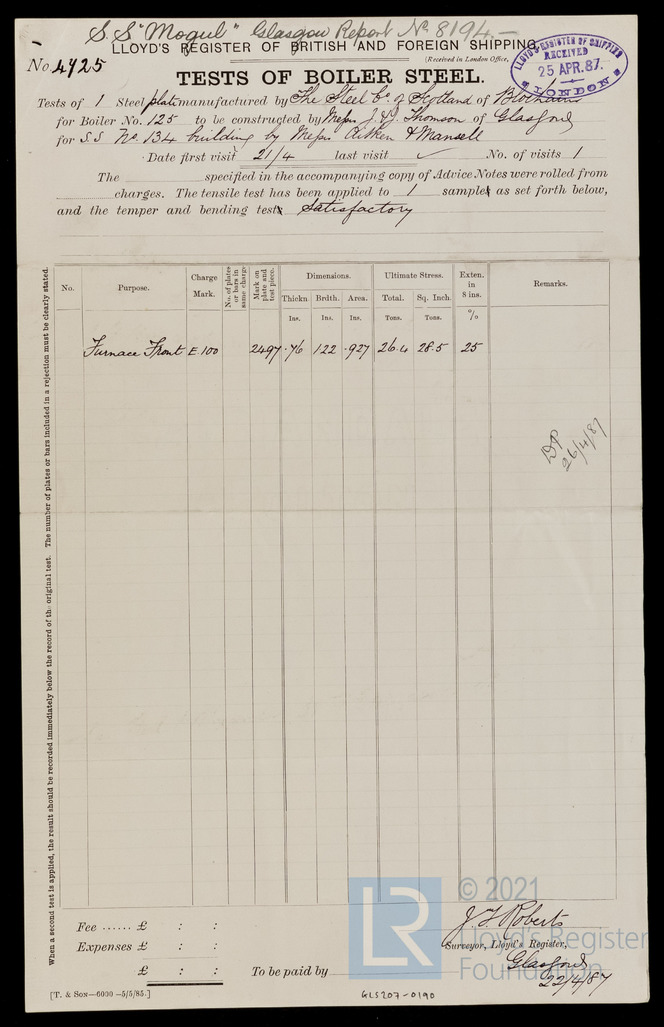 S.S "Mogul" Glasgow Report No 8194.-
LLOYD'S REGISTER OF BRITISH AND FOREIGN SHIPPING.
(Received in London Office,
LLOYD'S REGISTER OF SHIPPING
RECEIVED
25 APR.87.
LONDON
No 4425
TESTS OF BOILER STEEL.
Tests of 1 Steel plate manufactured by The Steel Co. of Scotland of
for Boiler No. 125 to be constructed by Messrs J. & J. Thomson of Glasgow
for S S No. 134 building by Messrs Aitken & Mansell
Date first visit 21/4 last visit No. of visits 1
The specified in the accompanying copy of Advice Notes were rolled from
charges. The tensile test has been applied to 1 sample as set forth below,
and the temper and bending test satisfactory
When a second test is applied, the result should be recorded immediately below the record of the original test. The number of plates or bars included in a rejection must be clearly stated.
No. Purpose. Charge Mark. No. of plates or bars in same charge Mark on plate and test piece. Dimensions. Ultimate Stress. Exten. in 8 ins. Remarks.
Thickn. Brdth. Area. Total. Sq. Inch.
Ins. Ins. Ins. Tons. Tons. %
Furnace Front E.100 2497 .76 122 .927 26.4 28.5 25
DP
26/4/87
© 2021
Lloyd's Register
Foundation
LR
Fee ...... £ : :
Expenses £ : :
£ : :
To be paid by
J. F. Roberts
Surveyor, Lloyd's Register,
Glasgow
22/4/87
[T. & Son—6000—5/5/85.]
GLS207-0190